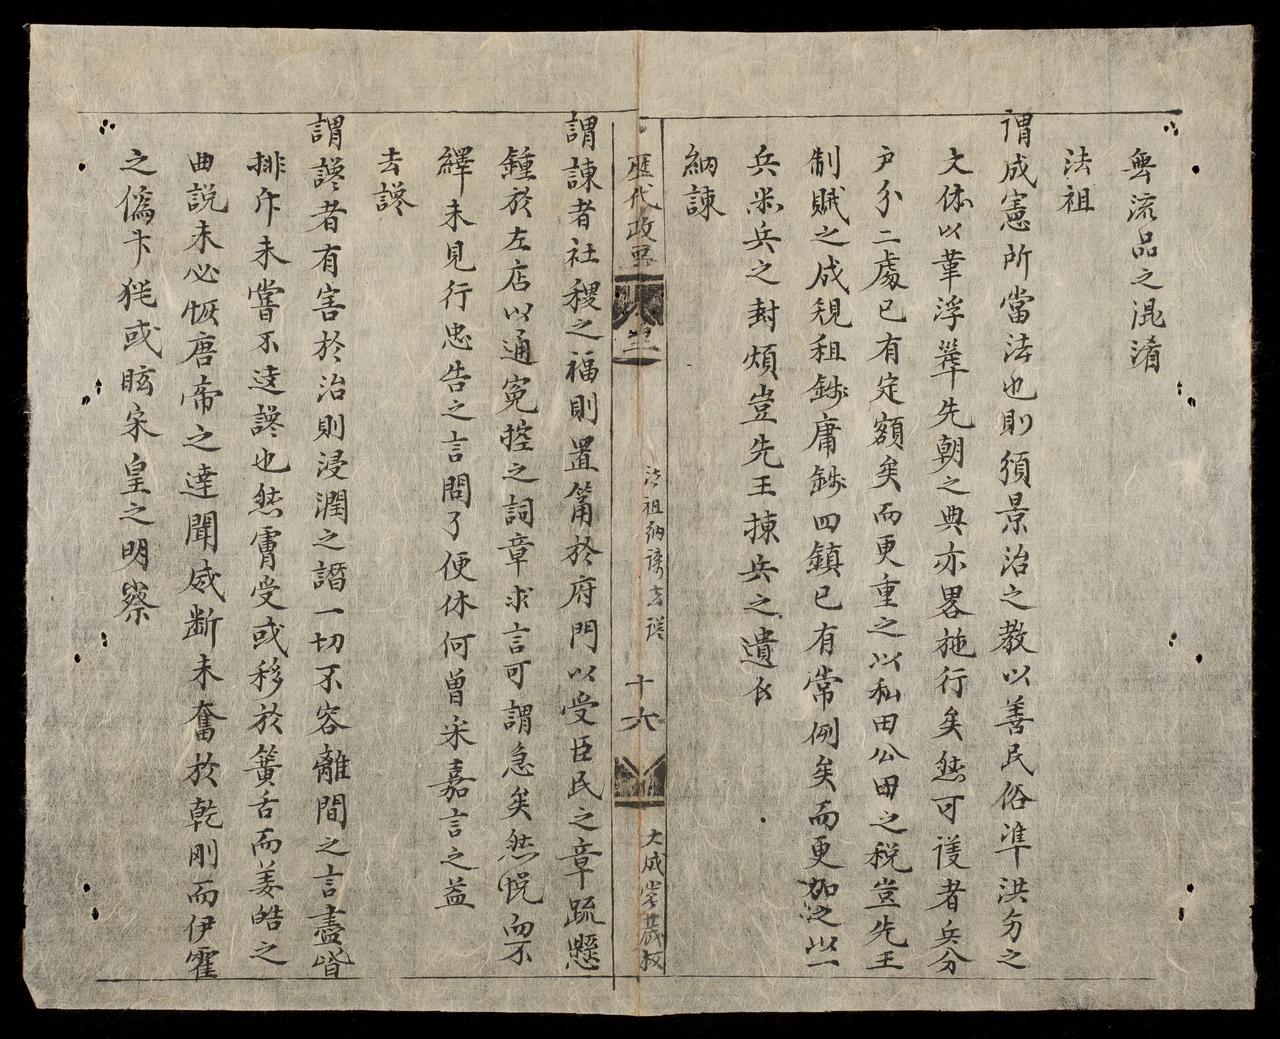 無流品之混淆
法祖
謂成憲所當法也則須景治之教以善民俗準洪分之
文体以革浮華先朝之典亦畧施行矣然可護者兵分
户分二處已有定額矣而更重之以私田公田之税豈先王
制賦之成規租錢庸錢四鎮已有常例矣而更加之以一
兵米兵之封煩豈先王揀兵之遺
納諫
歷代政要
卷三
法祖納諫去讒
十六
大成峯藏板
謂諫者社稷之福則置箾於府門以受臣民之章疏懸
鍾於左店以通寃控之詞章求言可謂急矣然悅而不
繹未見行忠告之言問了便休何曾采嘉言之益
去讒
謂讒者有害於治則浸潤之譖一切不容離間之言盡皆
排斥未嘗不逹讒也然膚受或移於簧舌而姜皓之
曲說未必恢唐帝之達聞威斷未奮於乾剛而伊霍
之僞卞㹠或眩宋皇之明察